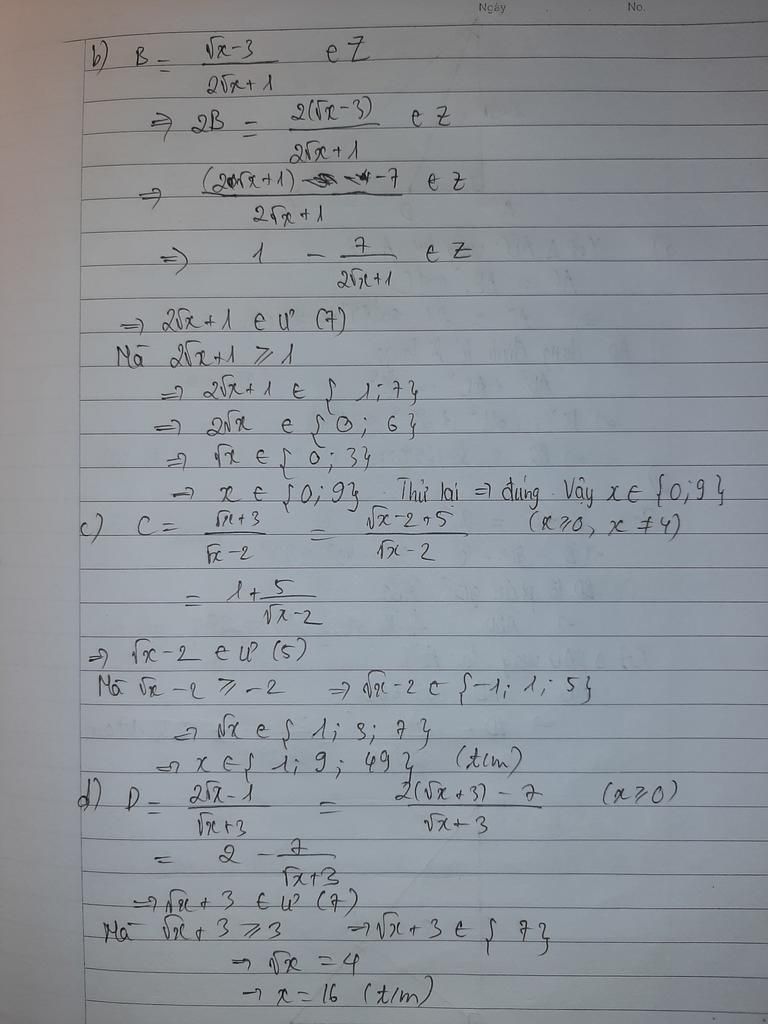 Ngày No.
b) B = (√x-3)/(2√x+1) ∈ Z
⇒ 2B = 2(√x-3)/(2√x+1) ∈ Z
⇒ ((2√x+1) -7)/(2√x+1) ∈ Z
⇒ 1 - 7/(2√x+1) ∈ Z
⇒ 2√x+1 ∈ Ư (7)
Mà 2√x+1 ⩾ 1
⇒ 2√x+1 ∈ { 1; 7}
⇒ 2√x ∈ { 0; 6}
⇒ √x ∈ { 0; 3}
→ x ∈ {0; 9} Thử lại ⇒ đúng. Vậy x ∈ {0; 9}
c) C = (√x+3)/(√x-2) = (√x-2+5)/(√x-2) (x⩾0, x ≠ 4)
= 1 + 5/(√x-2)
⇒ √x-2 ∈ Ư (5)
Mà √x-2 ⩾ -2 ⇒ √x-2 ∈ {-1; 1; 5}
⇒ √x ∈ { 1; 3; 7}
⇒ x ∈ { 1; 9; 49} (t/m)
d) D = (2√x-1)/(√x+3) = (2(√x+3) - 7)/(√x+3) (x⩾0)
= 2 - 7/(√x+3)
⇒ √x+3 ∈ Ư (7)
Mà √x+3 ⩾ 3 ⇒ √x+3 ∈ { 7}
→ √x = 4
→ x = 16 (t/m)